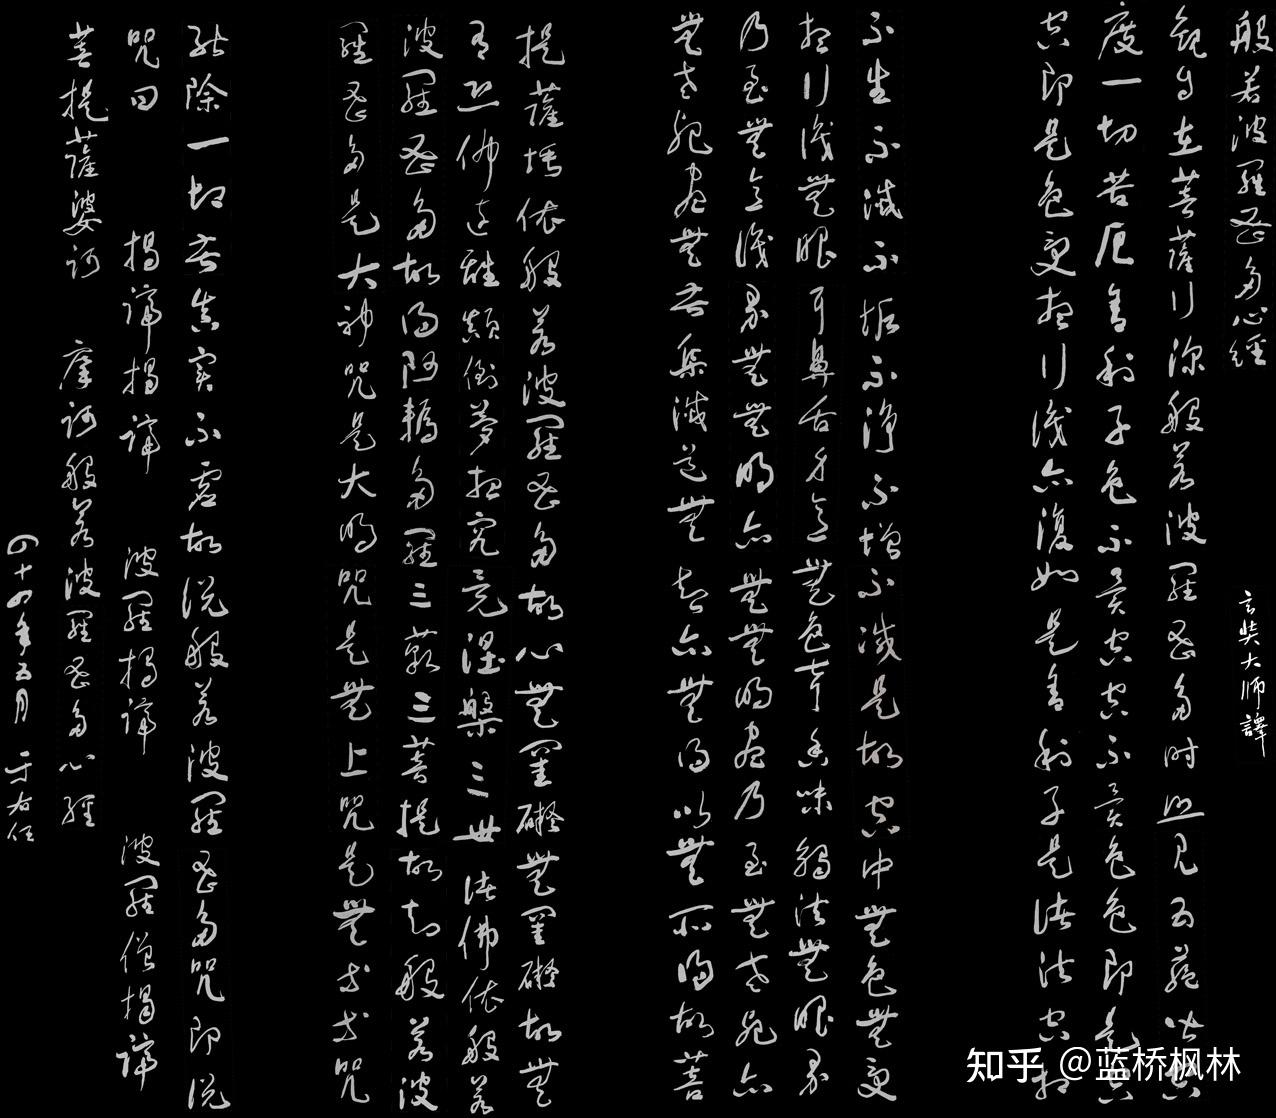 般若波羅蜜多心經
玄奘大師譯
觀自在菩薩行深般若波羅蜜多時照見五蘊皆空
度一切苦厄舍利子色不異空空不異色色即是空
空即是色受想行識亦復如是舍利子是諸法空相
不生不滅不垢不淨不增不減是故空中無色無受
想行識無眼耳鼻舌身意無色聲香味觸法無眼界
乃至無意識界無無明亦無無明盡乃至無老死亦
無老死盡無苦集滅道無智亦無得以無所得故菩
提薩埵依般若波羅蜜多故心無罣礙無罣礙故無
有恐怖遠離顛倒夢想究竟涅槃三世諸佛依般若
波羅蜜多故得阿耨多羅三藐三菩提故知般若波
羅蜜多是大神咒是大明咒是無上咒是無等等咒
能除一切苦真實不虛故說般若波羅蜜多咒即說
咒曰 揭諦揭諦 波羅揭諦 波羅僧揭諦
菩提薩婆訶 摩訶般若波羅蜜多心經
四十四年五月 于右任
知乎 @蓝桥枫林